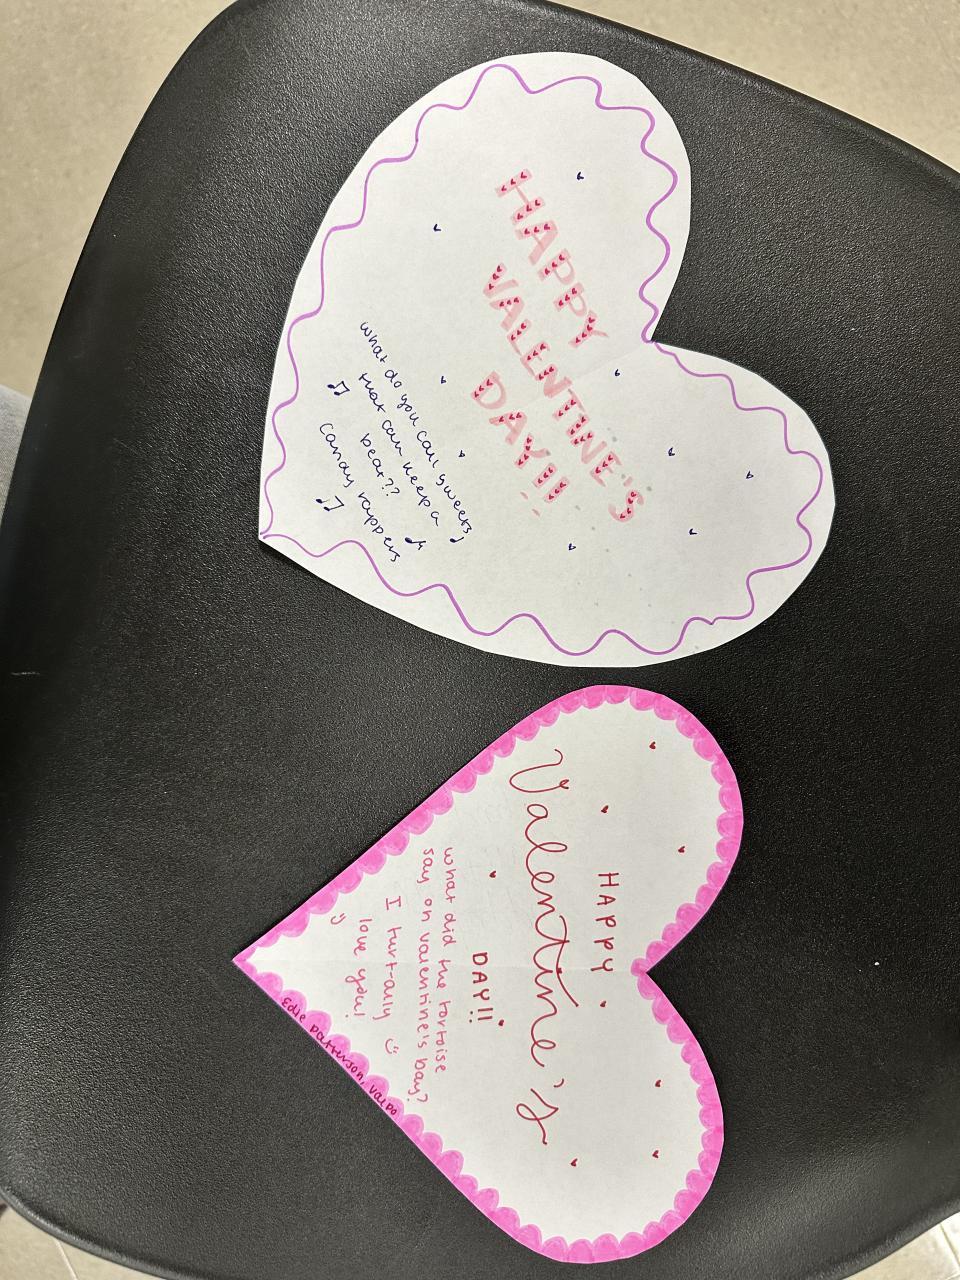 HAPPY
VALENTINE'S
DAY!!
what do you call sweets
that can keep a
beat??
candy rappers
HAPPY
Valentine's
DAY!!
what did the tortoise
say on valentine's Day?
I turt-ally
love you!
Edie Patterson, Valpo